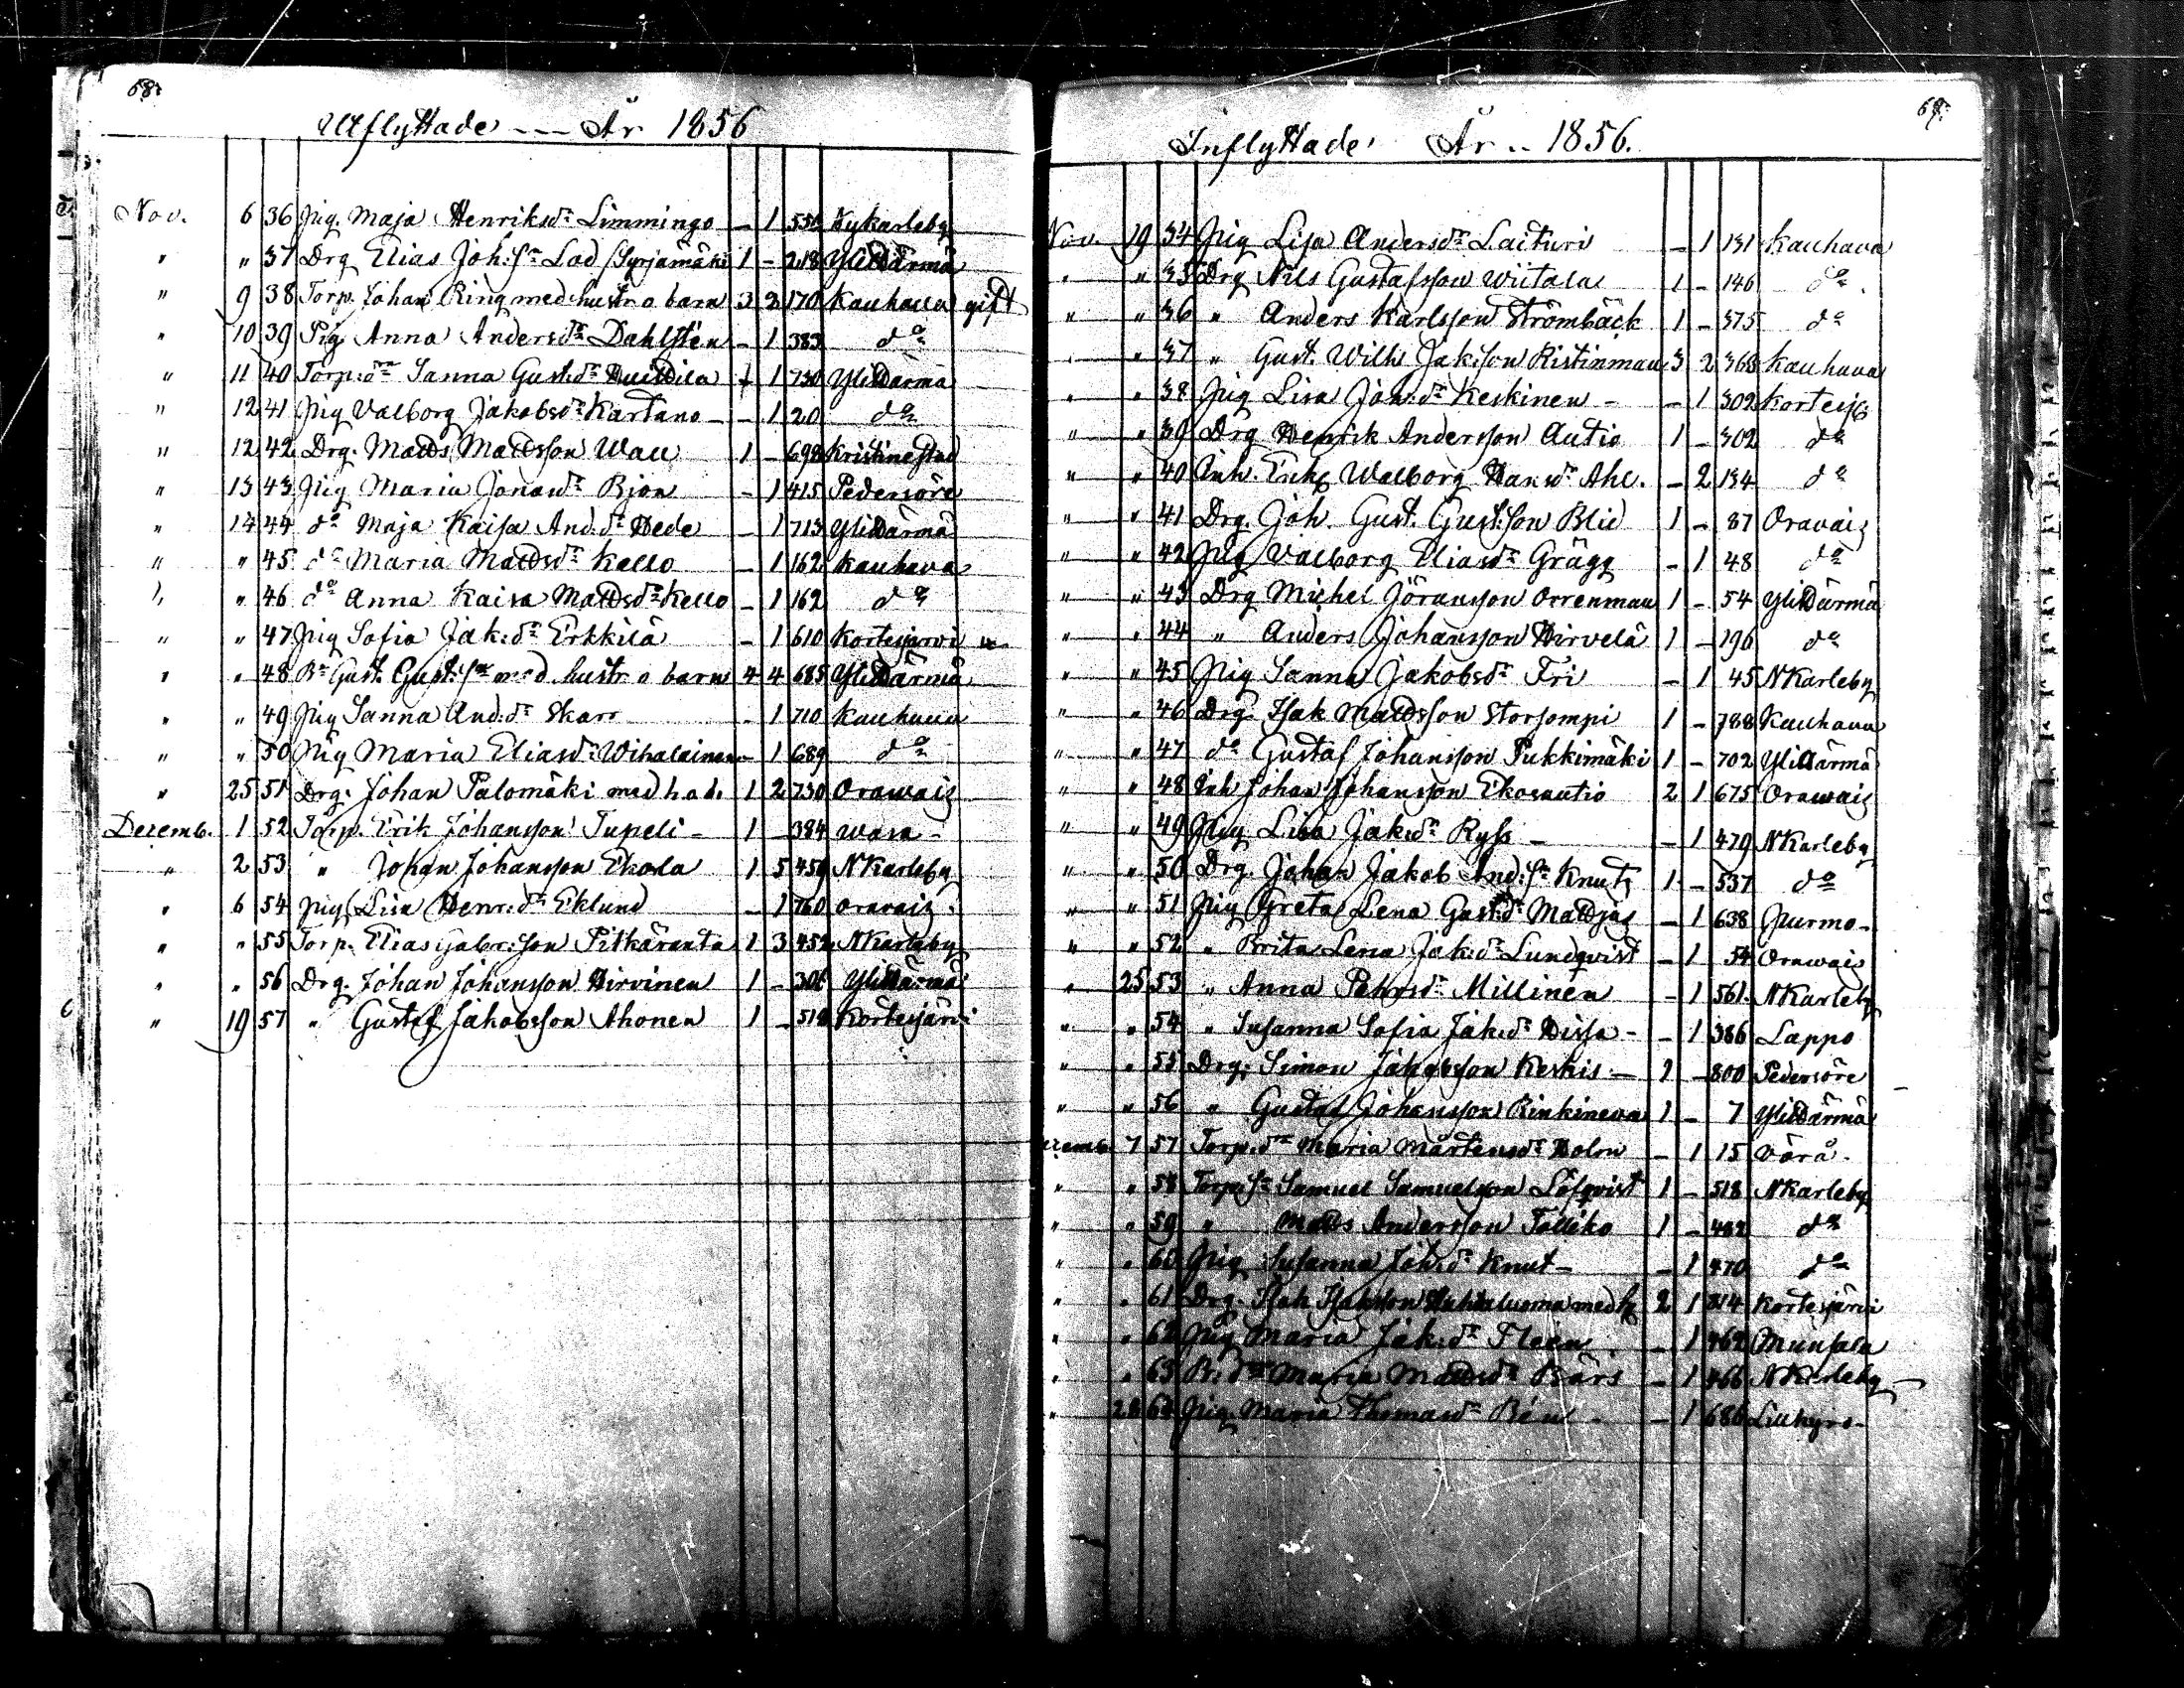 68.
Utflyttade --- År 1856
Nov. 6 36 Pig. Maja Henriksdr. Limmingo - 1 550 Nykarleby
" " 37 Drg Elias Joh:sn Lod / Syrjämäki 1 - 218 YliHärmä
" 9 38 Torp. Johan Ring med hustr o barn 3 2 170 Kauhava gift
" 10 39 Pig Anna Andersdr Dahlsten - 1 383 do
" 11 40 Torp:dr Sanna Gust:dr 1 730 YliHärmä
" 12 41 Pig Valborg Jakobsdr Kartano - - 1 20 do
" 12 42 Drg. Matts Mattsson Wall 1 - 698 Kristinestad
" 13 43 Pig Maria Jonasdr Björn - 1 415 Pedersöre
" 14 44 do Maja Kaisa And:dr Hede - 1 713 YliHärmä
" " 45 do Maria Mattsdr Kello - 1 162 Kauhava
" " 46 do Anna Kaisa Mattsdr Kello - 1 162 do
" " 47 Pig Sofia Jak:dr Erkkilä - 1 610 Kortesjärvi
" " 48 Bn Gust. Gust:sn med hustr o barn 4 4 685 YliHärmä
" " 49 Pig Sanna And:dr Skarr - 1 710 Kauhava
" " 50 Pig Maria Eliasdr Wihalainen - 1 689 do
" 25 51 Drg. Johan Palomäki med h. o d. 1 2 730 Orawais
Decemb. 1 52 Torp. Erik Johansson Tupeli - 1 - 384 Wasa -
" 2 53 " Johan Johansson Ekola 1 5 459 NKarleby
" 6 54 Pig Lisa Henr:dr Eklund - 1 760 Oravais
" " 55 Torp. Elias Gabr:son Pitkäranta 1 3 452 NKarleby
" " 56 Drg. Johan Johansson Hirvinen 1 - 306 YliHärmä
" 19 57 " Gustaf Jakobsson Ahonen 1 - 518 Kortesjärvi
69.
Inflyttade År .. 1856.
Nov. 19 34 Pig Lisa Andersdr Laituri - 1 131 Kauhava
" " 35 Drg Nils Gustafsson Wiitala 1 - 146 do
" " 36 " Anders Karlsson Strömbäck 1 - 375 do
" " 37 " Gust. Wilh. Jak:son Ristinmaa 3 2 363 Kauhava
" " 38 Pig Lisa Joh:dr Keskinen - - 1 302 Kortesj:
" " 39 Drg Henrik Andersson Autio 1 - 302 do
" " 40 Inh. Walborg Hansdr Ahl. - 2 134 do
" " 41 Drg. Joh. Gust. Gust:son Blid 1 - 87 Oravais
" " 42 Pig Valborg Eliasdr Grägg - 1 48 do
" " 43 Drg Michel Göransson Orrenmaa 1 - 54 YliHärmä
" " 44 " Anders Johansson Hirvelä 1 - 196 do
" " 45 Pig Sanna Jakobsdr Fri - 1 45 NKarleby
" " 46 Drg. Isak Mattsson Storsompi 1 - 788 Kauhava
" " 47 do Gustaf Johansson Pukkimäki 1 - 702 YliHärmä
" " 48 Inh Johan Johansson Ekosautio 2 1 675 Orawais
" " 49 Pig Lisa Jak:dr Ryss - - 1 479 NKarleby
" " 50 Drg. Johan Jakob And:sn Knuts 1 - 537 do
" " 51 Pig Greta Lena Gust:dr Mattjas - 1 638 Purmo -
" " 52 " Brita Lena Jak:dr Lundqvist - 1 54 Orawais
" 25 53 " Anna Pehrsdr Millinen - 1 561 NKarleby
" " 54 " Susanna Sofia Jak:dr Hissa - - 1 386 Lappo
" " 55 Drg. Simon Jakobsson Keskis - 1 - 800 Pedersöre
" " 56 " Gustaf Johansson Rinkineva 1 - 7 YliHärmä
Decemb. 7 57 Torp:dr Maria Mårtensdr Holm - 1 15 Vörå -
" " 58 Torp:sn Samuel Samuelsson Löfqvist 1 - 518 NKarleby
" " 59 " Matts Andersson Talliko 1 - 482 do
" " 60 Pig Susanna Joh:dr Knut - - 1 470 do
" " 61 Drg. Isak Isaksson med h 2 1 814 Kortesjärvi
" " 62 Pig Maria Jak:dr Fleen - 1 462 Munsala
" " 63 B:dr Maria Mattsdr Bärs - 1 466 NKarleby
" 28 64 Pig Maria Thomasdr - 1 686 Lillkyro -